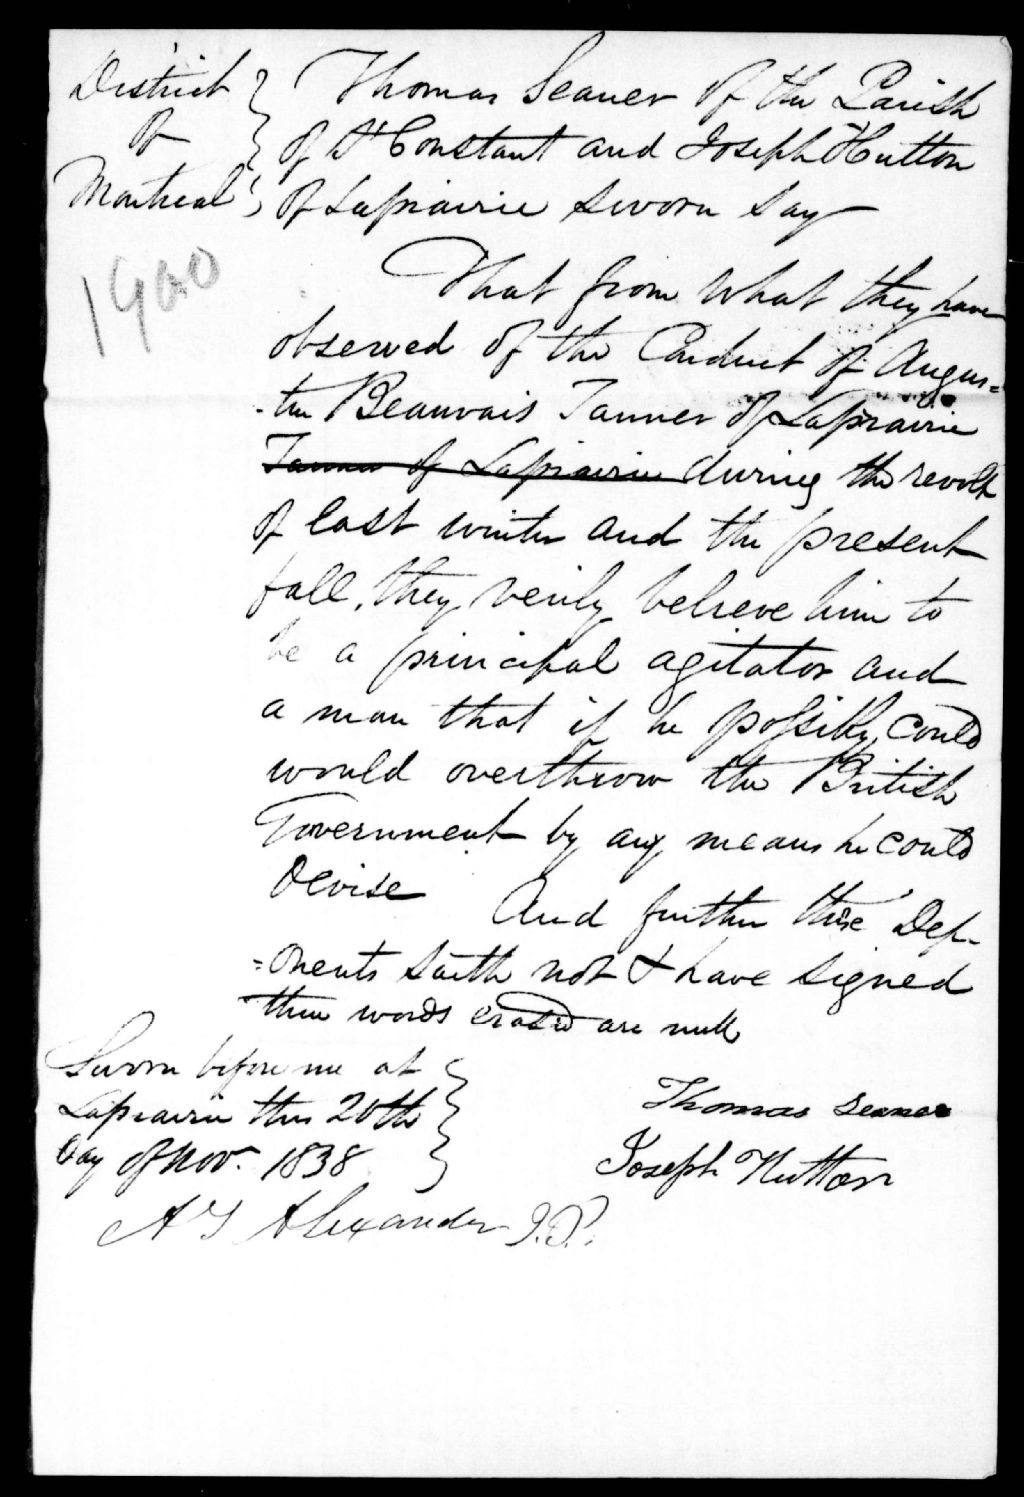 District
of
Montreal
Thomas Seaver of the Parish
of St Constant and Joseph Hutton
of Laprairie sworn say
1900
That from what they have
observed of the Conduct of Augus=
-tin Beauvais Tanner of Laprairie
Tanner of Laprairie during the revolt
of last winter and the present
fall, they verily believe him to
be a principal agitator and
a man that if he possibly could
would overthrow the British
Government by any means he could
devise And further these Dep-
=onents saith not & have signed
three words erased are null
Sworn before me at
Laprairie this 20th
day of Nov. 1838
Thomas Seaver
Joseph Hutton
A Alexander J.P.